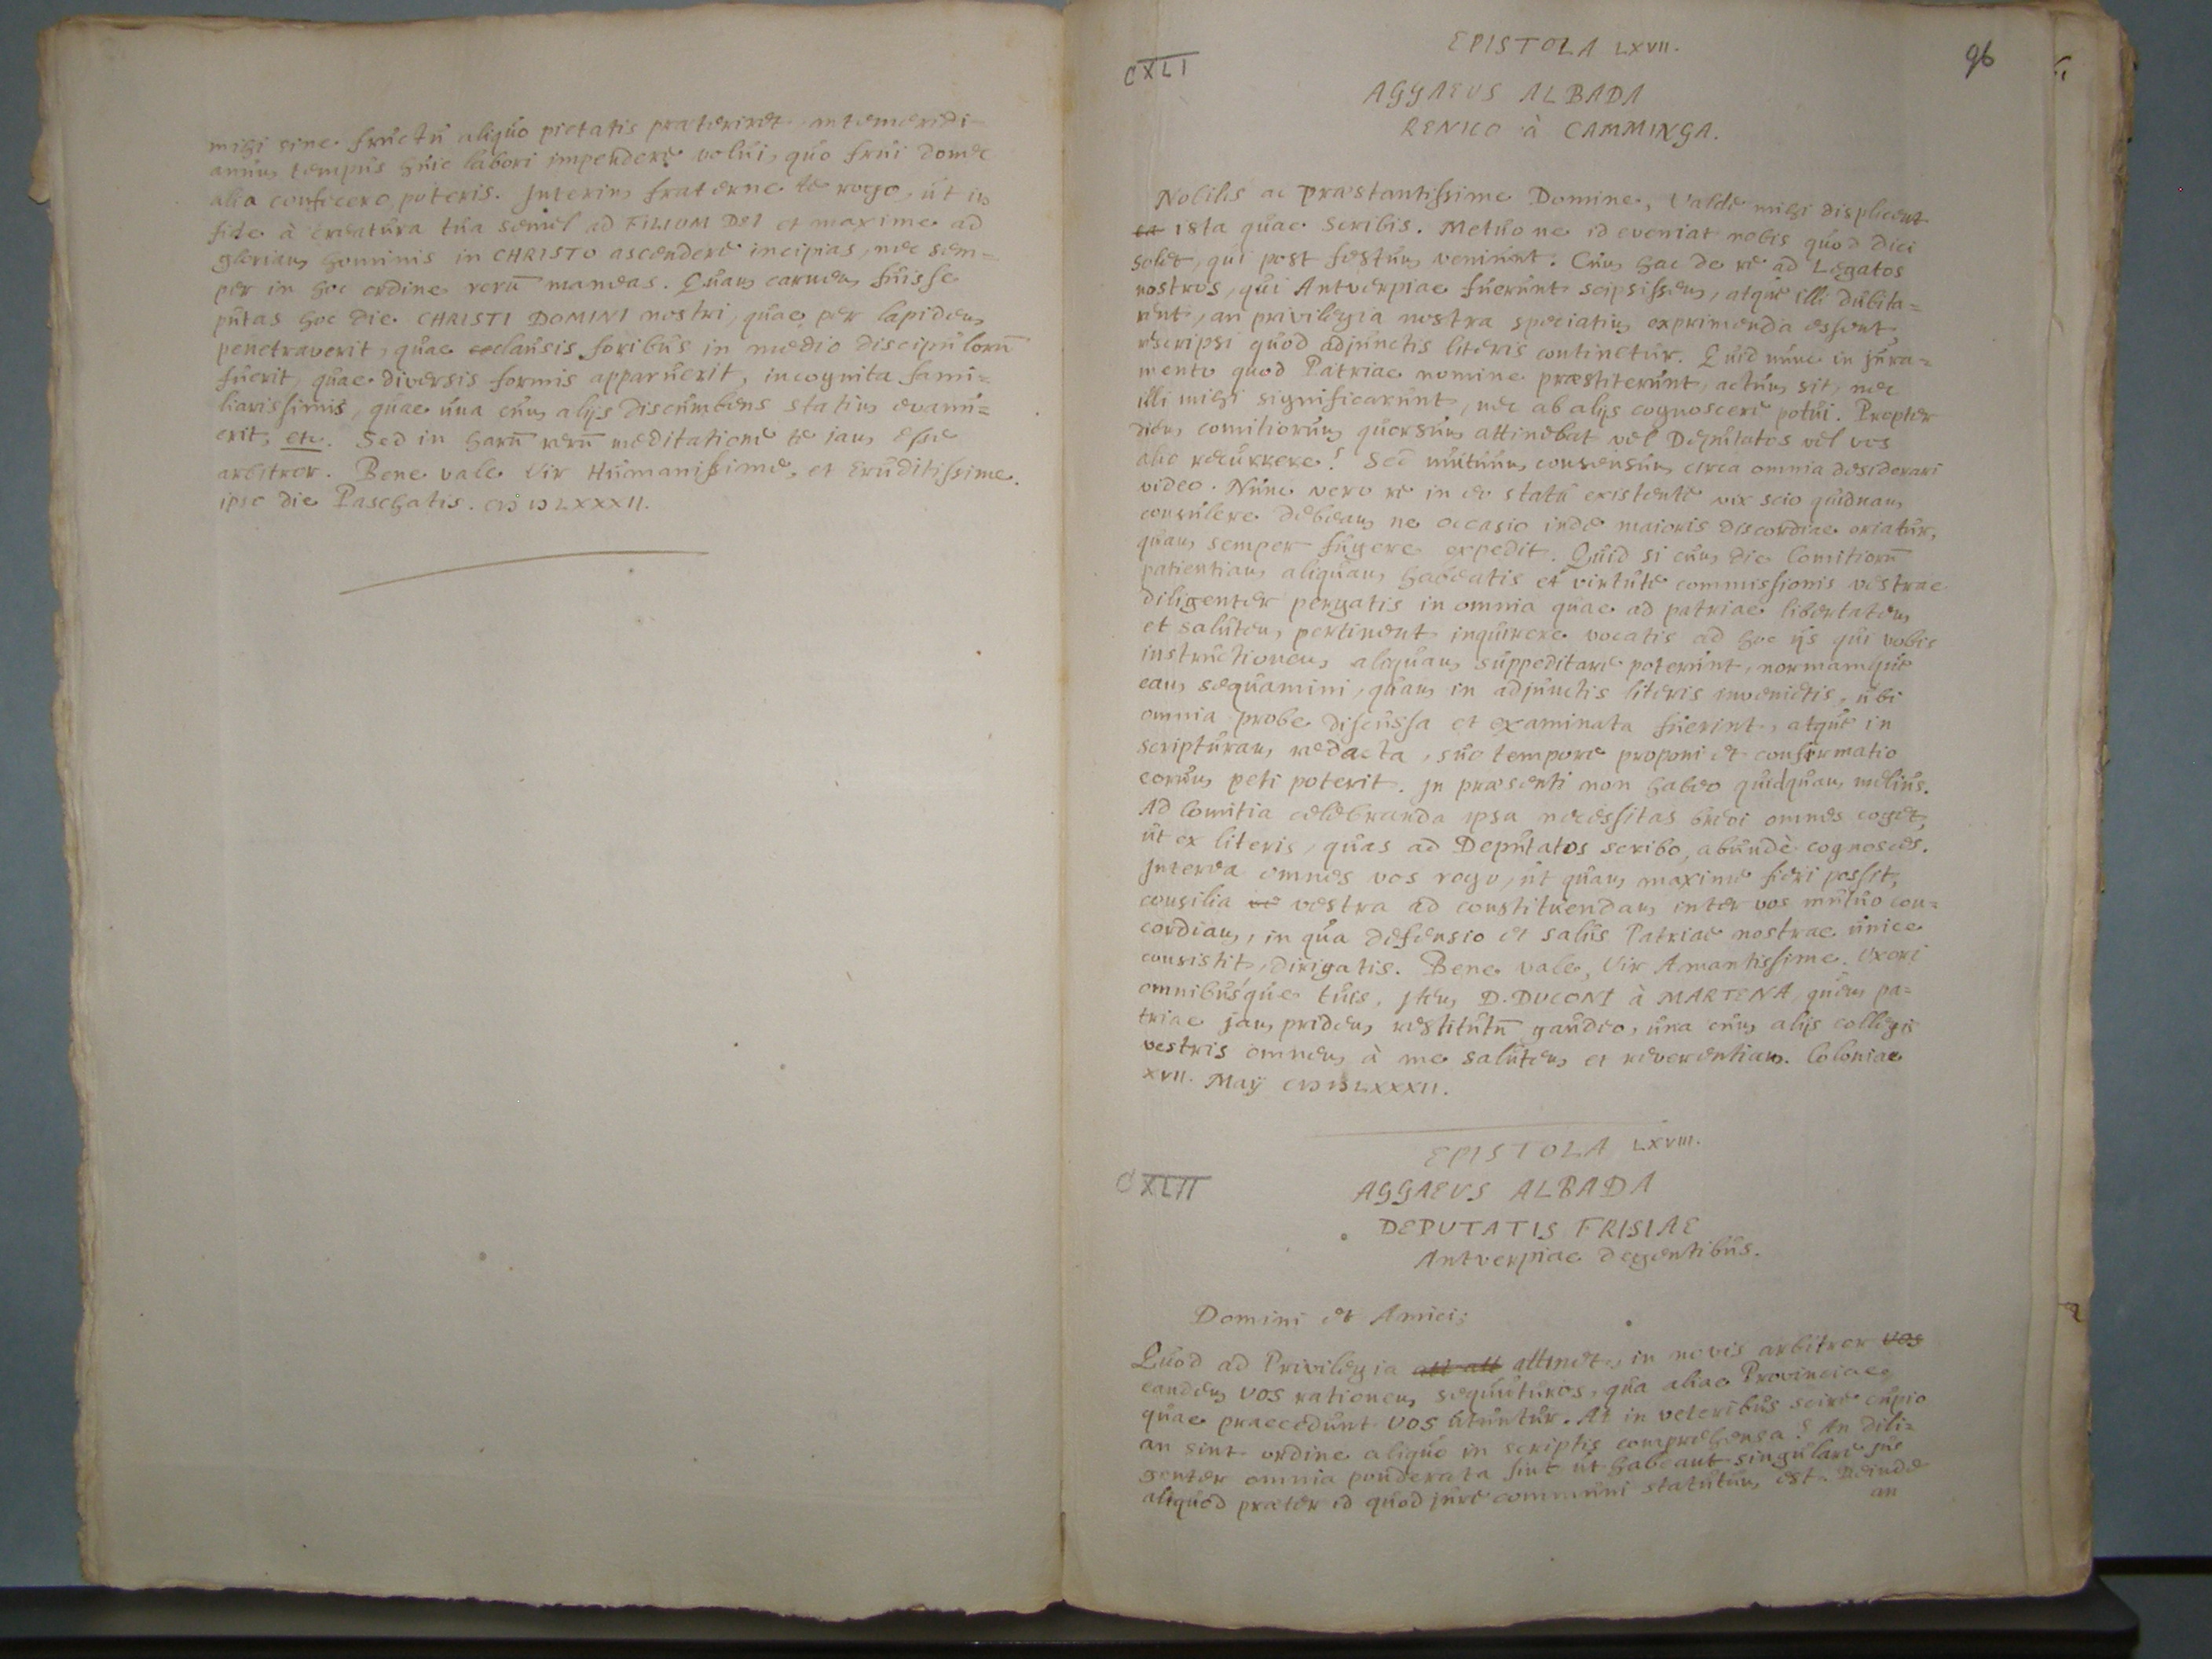 mihi sine fructu aliquo pietatis praeteriret antemeridi-
anum tempus huic labori impendere volui, quo frui donec
alia confecero, poteris. Interim fraterne te rogo, ut in
fide à creatura tua semel ad FILIUM DEI et maxime ad
gloriam hominis in CHRISTO ascendere incipias, nec sem-
per in hoc ordine rerū maneas. Quam carnem fuisse
putas hoc die CHRISTI DOMINI nostri, quae per lapidem
penetraverit, quae clausis foribus in medio discipulorū
fuerit, quae diversis formis apparuerit, incognita fami=
liarissimis, quae una cum alijs discumbens statim evanu=
erit, etc. Sed in harū rerū meditatione te jam esse
arbitror. Bene vale Vir Humanissime, et Eruditissime.
ipso die Paschatis. CIƆ IƆ LXXXII.
96
EPISTOLA LXVII.
CXLI
AGGAEUS ALBADA
RENICO à CAMMINGA.
Nobilis ac Praestantissime Domine, Valde mihi displicent
ea ista quae scribis. Metuo ne id eveniat nobis quod dici
solet, qui post festum veniunt. Cum hac de re ad Legatos
nostros, qui Antverpiae fuerunt scipsissem, atque illi dubita=
rent, an privilegia nostra speciatim exprimenda essent,
rescripsi quod adjunctis literis continetur. Quid nunc in jura=
mento quod Patriae nomine praestiterunt, actum sit, nec
illi mihi significarunt, nec ab alijs cognoscere potui. Propter
diem comitiorum quorsum attinebat vel Deputatos vel vos
alio recurrere? Sed mutuum consensum circa omnia desiderari
video. Nunc vero re in eo statu existente vix scio quidnam
consulere debeam ne occasio inde maioris discordiae oriatur,
quam semper fugere expedit. Quid si cum die Comitiorū
patientiam aliquam habeatis et virtute commissionis vestrae
diligenter pergatis in omnia quae ad patriae libertatem
et salutem pertinent inquirere vocatis ad hoc ijs qui vobis
instructionem aliquam suppeditare poterunt, normamque
eam sequamini, quam in adjunctis literis invenietis, ubi
omnia probe discussa et examinata fuerint, atque in
scripturam redacta, suo tempore proponi et confirmatio
eorum peti poterit. In praesenti non habeo quidquam melius.
Ad Comitia celebranda ipsa necessitas brevi omnes coget,
ut ex literis, quas ad Deputatos scribo, abundè cognosces.
Interea omnes vos rogo, ut quam maxime fieri possit,
consilia vestra ad constituendam inter vos mutuo con=
cordiam, in qua defensio et salus Patriae nostrae unice
consistit, dirigatis. Bene vale, Vir Amantissime. Uxori
omnibusque tuis, Item D. DUCONI à MARTENA, quem pa=
triae jam pridem restitutū gaudeo, una cum alijs collegis
vestris omnem à me salutem et reverentiam. Coloniae
XVII. Maÿ CIƆ IƆ LXXXII.
EPISTOLA LXVIII.
CXLII
AGGAEUS ALBADA
DEPUTATIS FRISIAE
Antverpiae degentibus.
Domini et Amici;
Quod ad Privilegia att att attinet, in novis arbitror vos
eandem vos rationem sequuturos, qua aliae Provinciae,
quae praecedunt vos utuntur. At in veteribus scire cupio
an sint ordine aliquo in scriptis comprehensa? An dili=
genter omnia ponderata sint ut habeant singulare jus
aliquod praeter id quod jure communi statutum est. Deinde
an